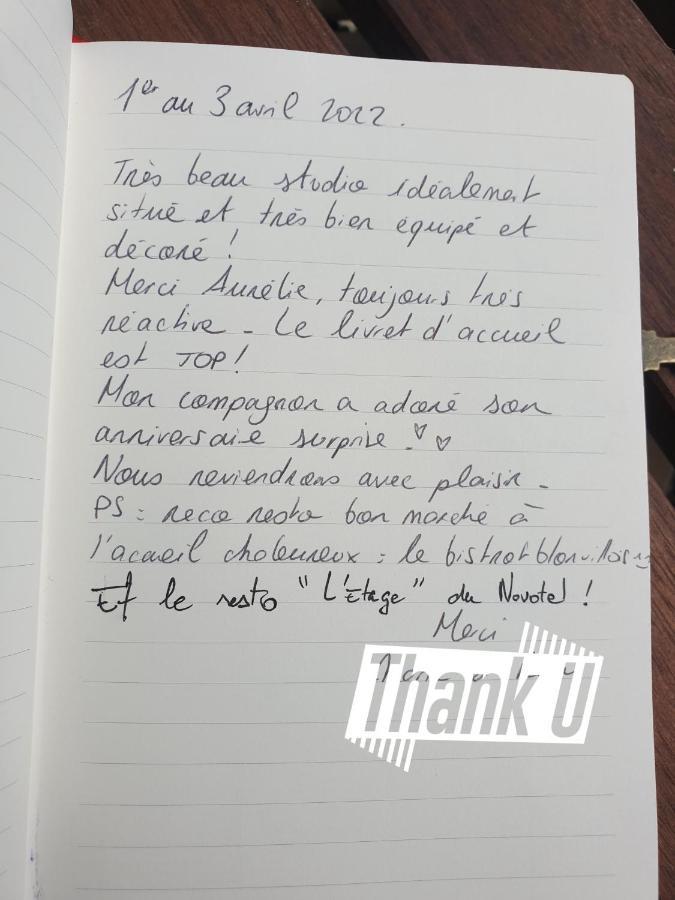 1er au 3 avril 2022.
Très beau studio idéalement
situé et très bien équipé et
décoré !
Merci Aurélie, toujours très
réactive - Le livret d'accueil
est TOP !
Mon compagnon a adoré son
anniversaire surprise ! ♡ ♡
Nous reviendrons avec plaisir -
PS : reco resto bon marché à
l'acueil chaleureux : le bistrot blonvillois
Et le resto "L'Étage" du Novotel !
Merci
Thank U